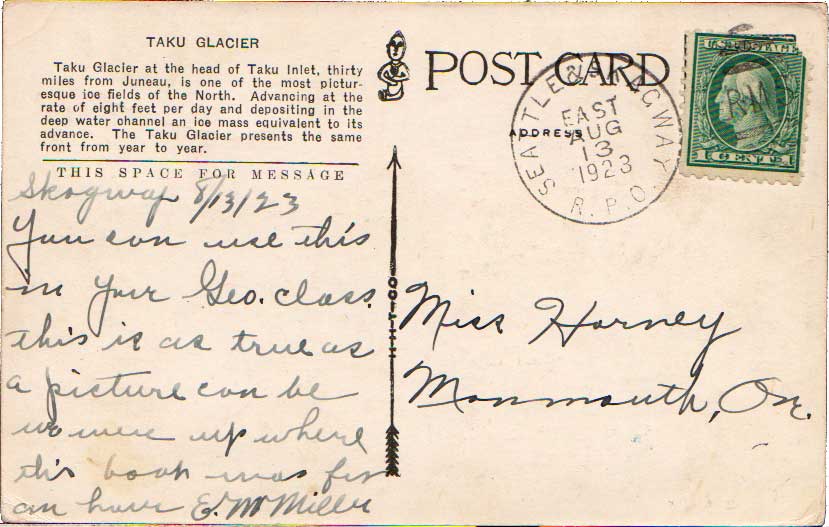 TAKU GLACIER
Taku Glacier at the head of Taku Inlet, thirty
miles from Juneau, is one of the most pictur-
esque ice fields of the North. Advancing at the
rate of eight feet per day and depositing in the
deep water channel an ice mass equivalent to its
advance. The Taku Glacier presents the same
front from year to year.
THIS SPACE FOR MESSAGE
Skagway 8/13/23
You can use this
in your Geo. class.
this is as true as
a picture can be
we were up where
this was
E. M Miller
POST CARD
ADDRESS
SEATTLE & SKAGWAY
EAST
AUG
13
1923
R.P.O.
U.S. POSTAGE
1 CENT 1
H-H-T-CO
Miss Harney
Monmouth, Or.